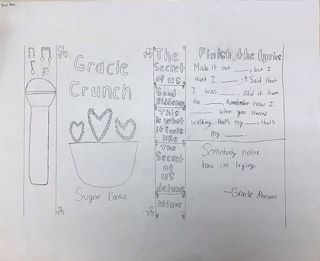 Gracie
Crunch
Sugar Cookie
The
Secret
of us
Good
Riddance
This
is what
it feels
like
The
Secret
of
us
deluxe
minor
Finish the lyrics
Made it out ___, but I
think I ___, it. Said that
I was ___, said it from
the ___. Remember how I
___ when you started
walking, that's my ___, that's
my ___
Somebody notice
how i'm trying.
—Gracie Abrams